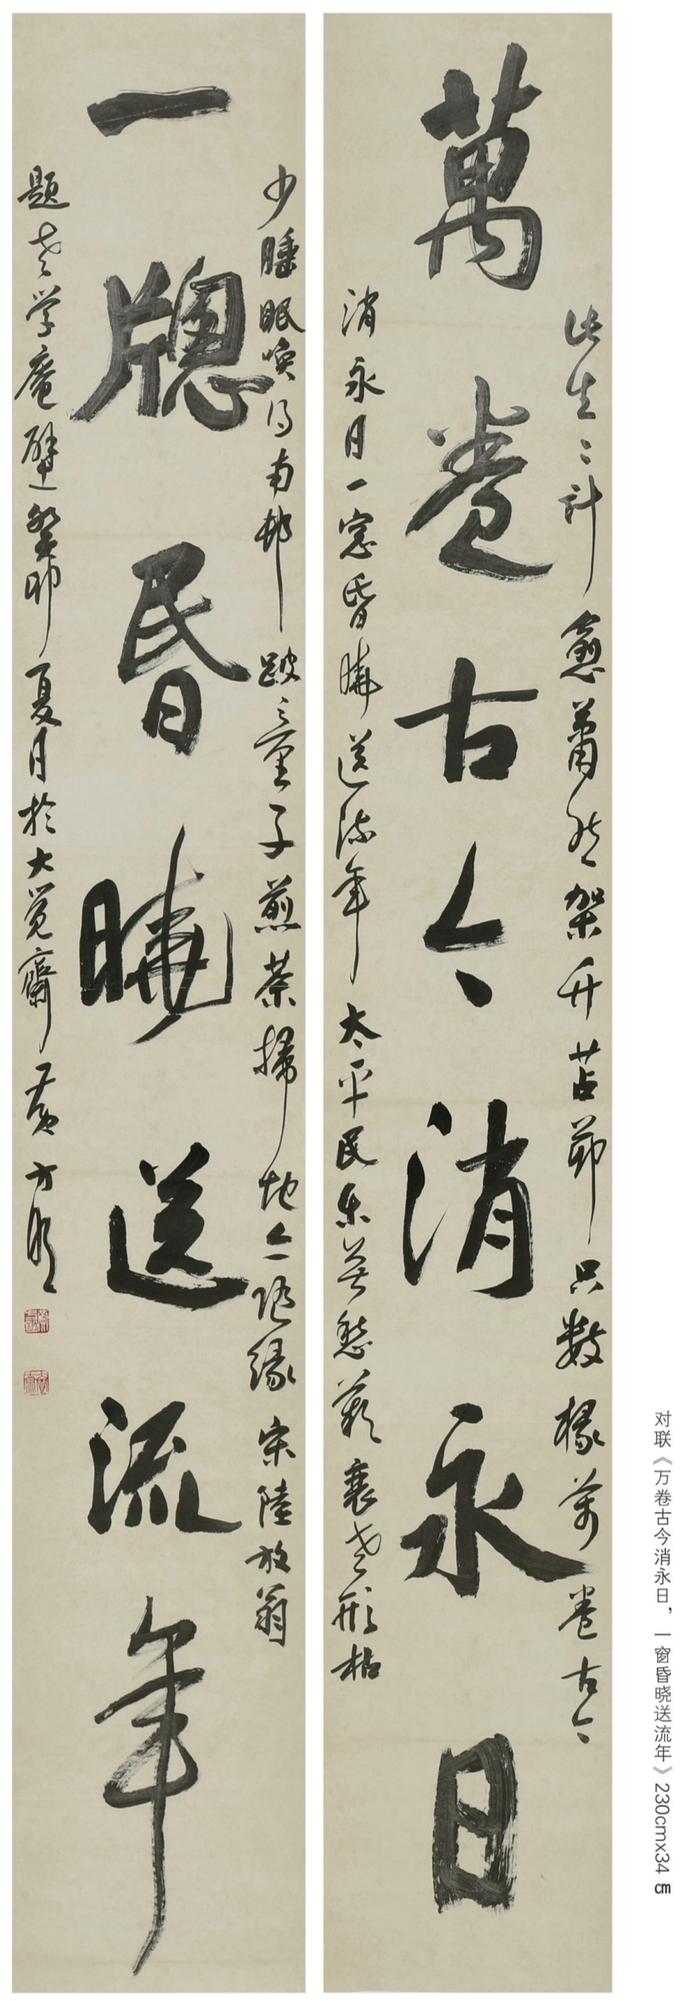 此生〻計愈蕭然架竹苫茆只數椽萬卷古今
萬卷古今消永日
消永日一窓昏曉送流年太平民樂無愁歎衰老形枯
少睡眠喚得南邨跛童子煎茶掃地亦随緣宋陸放翁
一牎昏曉送流年
題老学庵壁癸卯夏月於大覚齋黄方
对联《万卷古今消永日，一窗昏晓送流年》230cmx34㎝